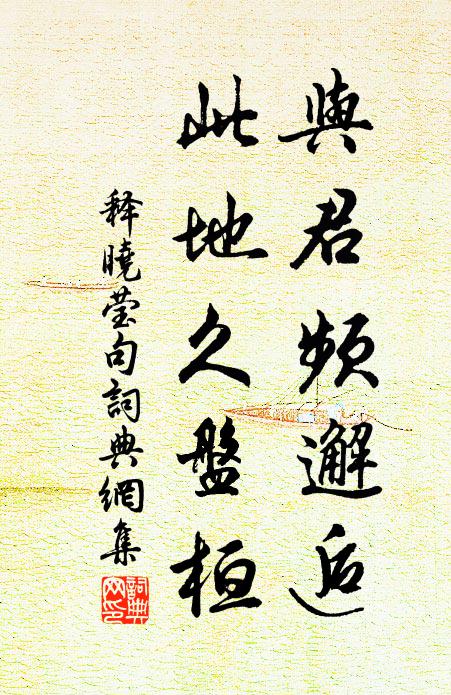 與君頻邂逅
此地久盤桓
释曉瑩句詞典網集
詞典网印